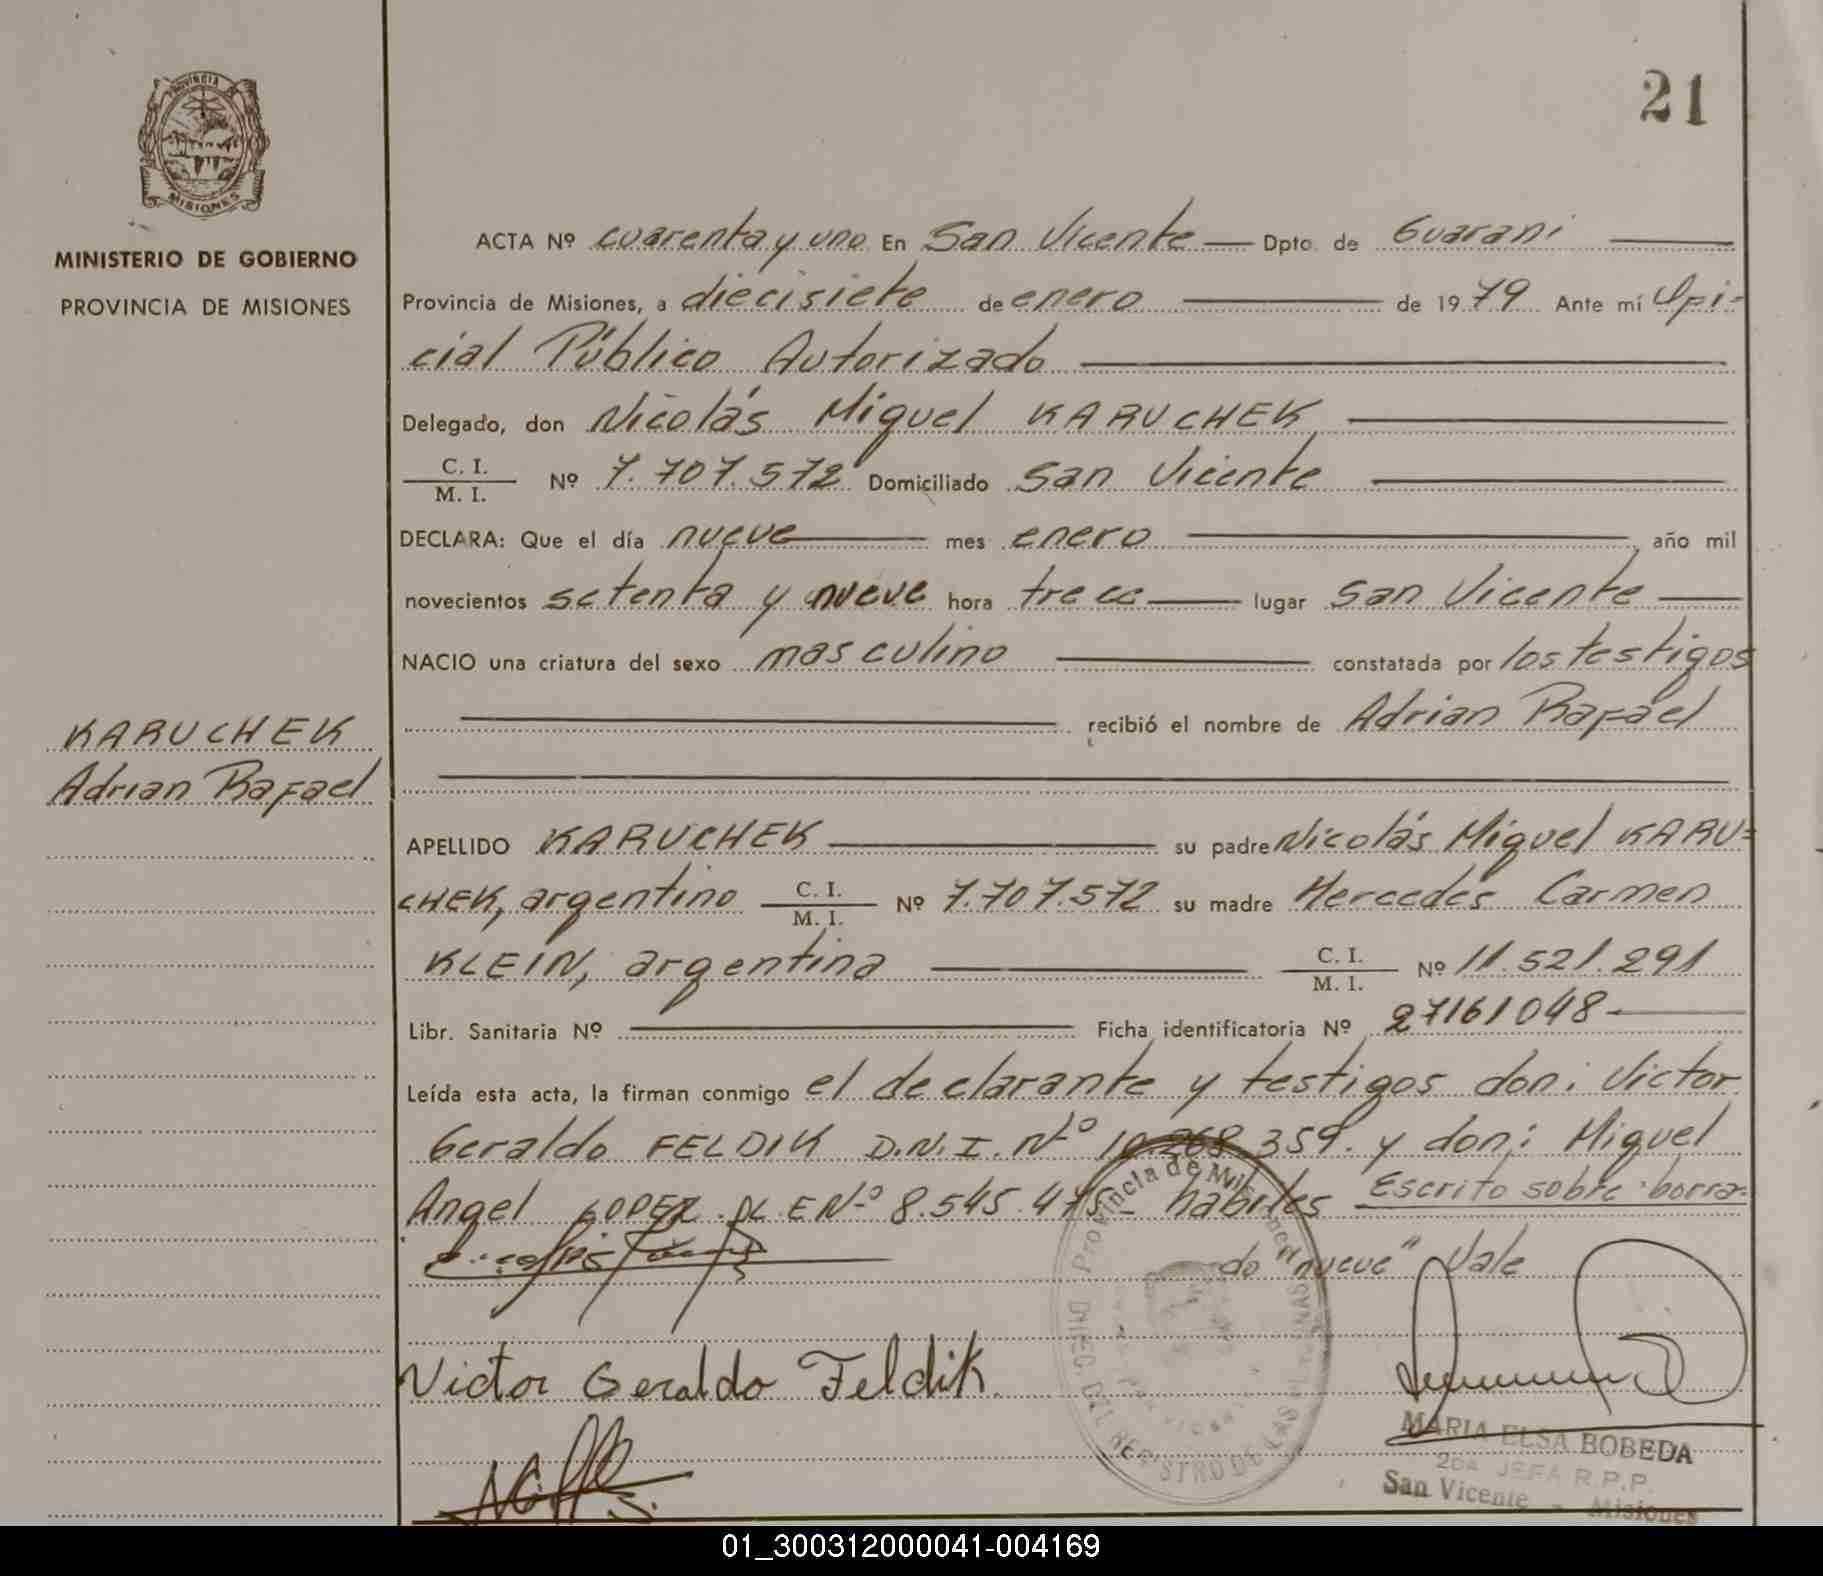 21
PROVINCIA
MISIONES
MINISTERIO DE GOBIERNO
PROVINCIA DE MISIONES
ACTA Nº cuarenta y uno En San Vicente Dpto. de Guarani
Provincia de Misiones, a diecisiete de enero de 1979 Ante mí Ofi-
cial Público Autorizado
Delegado, don Nicolás Miguel KARUCHEK
C. I.
M. I. Nº 7.707.572 Domiciliado San Vicente
DECLARA: Que el día nueve mes enero año mil
novecientos setenta y nueve hora trece lugar San Vicente
NACIO una criatura del sexo masculino constatada por los testigos
recibió el nombre de Adrian Rafael
KARUCHEK
Adrian Rafael
APELLIDO KARUCHEK su padre Nicolás Miguel KARU=
CHEK, argentino C. I. M. I. Nº 7.707.572 su madre Mercedes Carmen
KLEIN, argentina C. I. M. I. Nº 11.521.291
Libr. Sanitaria Nº Ficha identificatoria Nº 27161048
Leída esta acta, la firman conmigo el declarante y testigos don: Victor
Geraldo FELDIK D.N.I. Nº 10.268.359. y don: Miguel
Angel LOPEZ. D.L.E Nº 8.545.475- habiles Escrito sobre borra-
do "nueve" Vale
Provincia de Misiones
DIREC. DEL REGISTRO DE LAS PERSONAS
SAN VICENTE
Victor Geraldo Feldik.
MARIA ELSA BOBEDA
2DA JEFA R.P.P.
San Vicente - Misiones
01_300312000041-004169